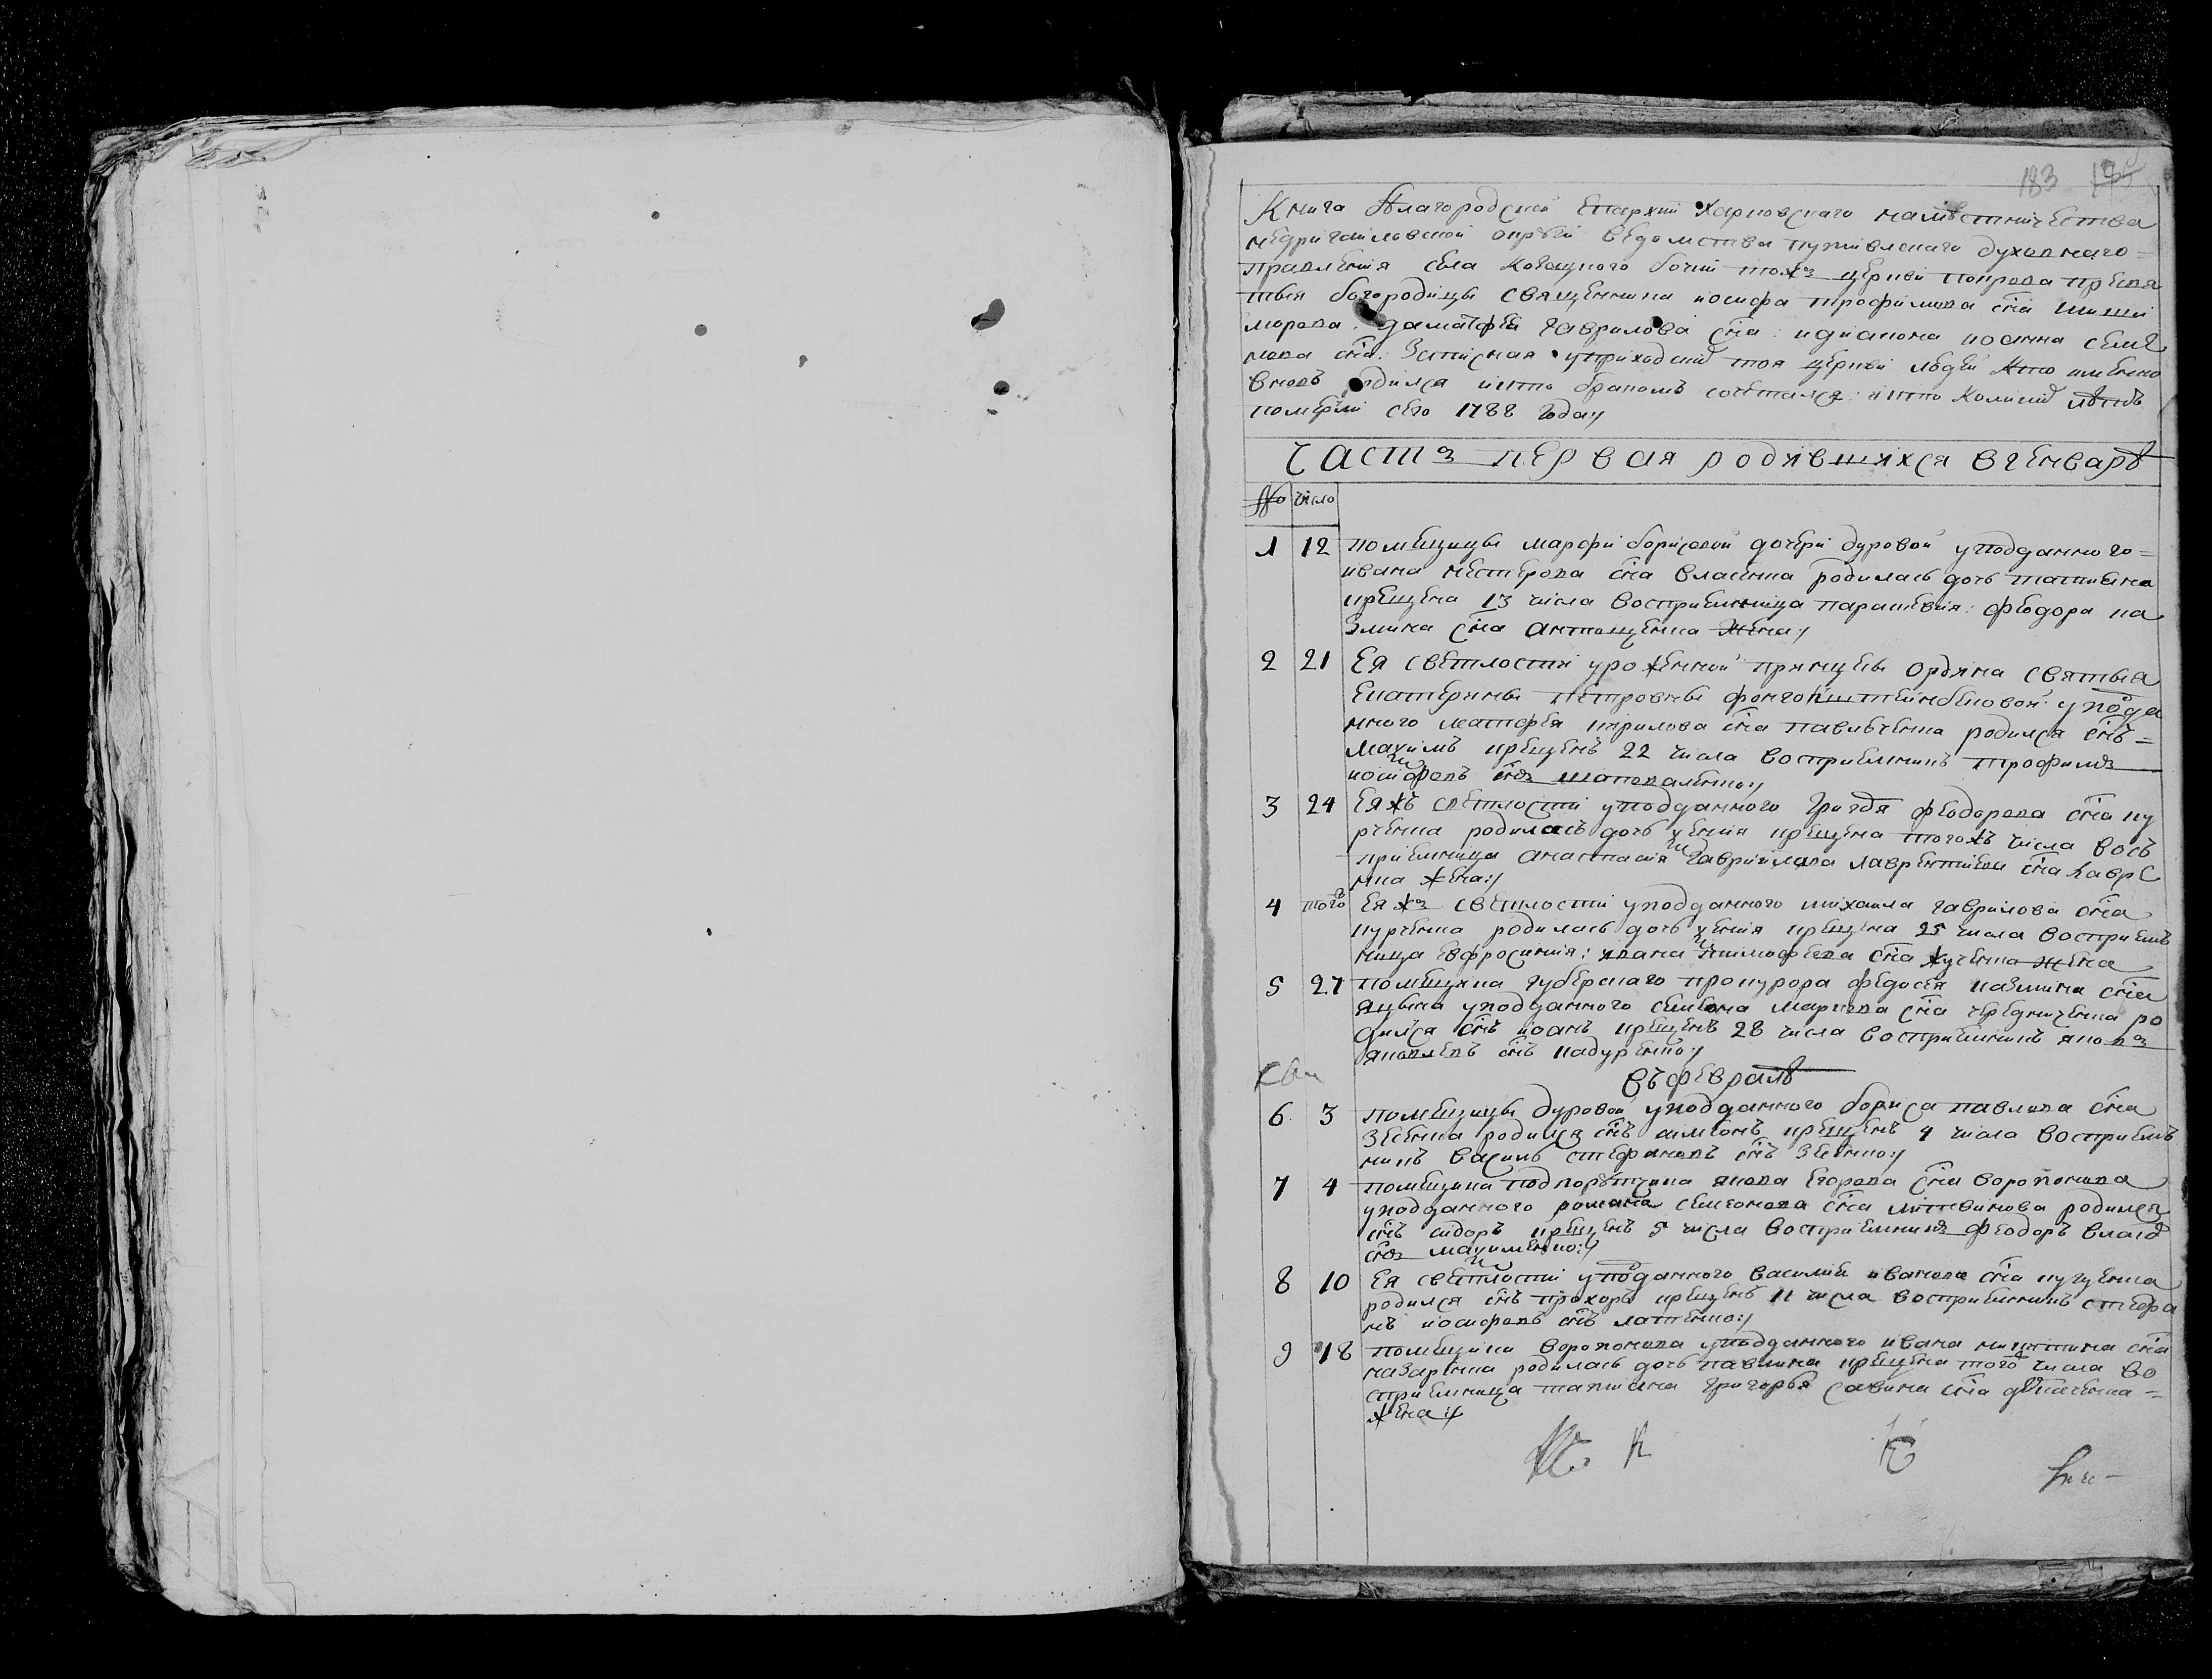 183
Книга Благородской Епархии Харковскаго наместничества
недригайловской округи ведомства путивлскаго духовнаго=
правления села тожъ церкви покрова пресвя
тыя богородицы священника иосифа трофимова сна
гаврилова сна: идиакона иоанна симе
нова сна: Записная уприходской тоя церкви людей кто именно
вновъ родился икто бракомъ сочетался: икто Колики летъ
померли сего 1788 года:/
Частъ первая родившихся вгенваре
№ число
1 12 помещицы марфи борисовой дочери дуровой уподданного=
ивана нестерова сна власенка родилась дочь татияна
крещена 13 числа восприемница параскевия: феодора ко
змина сна антощенка жена:/
2 21 Ея светлости урожденной принцесы ордяна святыя
Екатерины петровны уподда
нного матфея кирилова сна павличенка родился снъ=
махимъ крещенъ 22 числа восприемникъ трофимъ
иосифовъ снъ шаповаленко:/
3 24 Еяжъ светлости уподданного феодорова сна ку
рченка родиласъ дочь ксения крещена тогожъ числа вось
приемница анастасия гавриилова лаврентиева сна лаврЕ
нка жена:/
4 того Еяжъ светлости уподданного михаила гаврилова сна
курченка родилась дочь ксения крещена 25 числа восприемъ
ница евфросиния: ивана тимофеева сна жученка жена
5 27 помещика губерскаго прокурора федосея казмина сна
яцына уподданного симеона маркова сна чередниченка ро
дилса снъ иоанъ крещенъ 28 числа восприемникъ яковъ
яковлевъ снъ кадуренко:/
въ феврале
6 3 помещицы дуровой уподданного бориса павлова сна
зеенка родился снъ симеонъ крещенъ 4 числа восприемъ
никъ василь стефановъ снъ зеенко:/
7 4 помещика подпорутчика якова егорова сна воропонова
уподданного романа семионова сна литвинова родился
снъ сидоръ крещенъ 5 числа восприемникъ феодоръ
снъ махименко:/
8 10 Ея светлости уподданного василия иванова сна
родился снъ прохоръ крещенъ 11 числа восприемникъ стефа
нъ иосифовъ снъ латенко:/
9 18 помещика воропонова уподданного ивана никитина сна
назаренка родилась дочь павлина крещена того числа во
сприемница татияна григорья савина сна =
жена:/